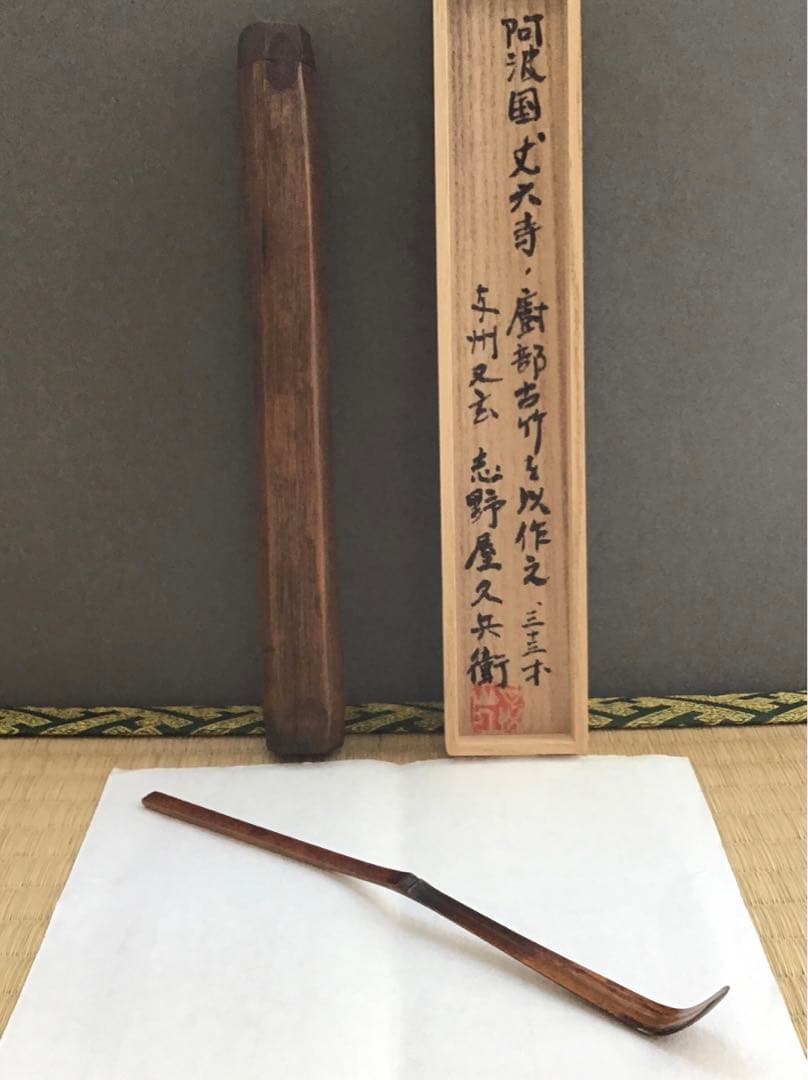 阿波国丈六寺、廚部古竹を以作之、
州又玄 志野屋久兵衛